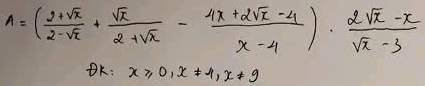 A = ( (2+√x)/(2-√x) + √x/(2+√x) - (4x+2√x-4)/(x-4) ) · (2√x-x)/(√x-3)
ĐK: x ≥ 0, x ≠ 4, x ≠ 9